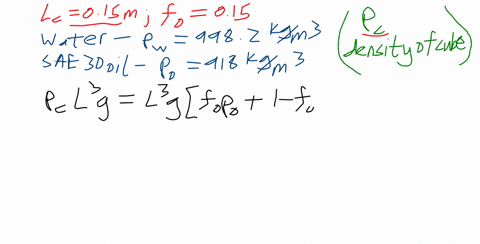 Lc = 0.15m; fo = 0.15
Water - ρw = 998.2 kg/m3
SAE 30 oil - ρo = 918 kg/m3
(ρc density of cube)
ρc L³g = L³g[foρo + 1-fo